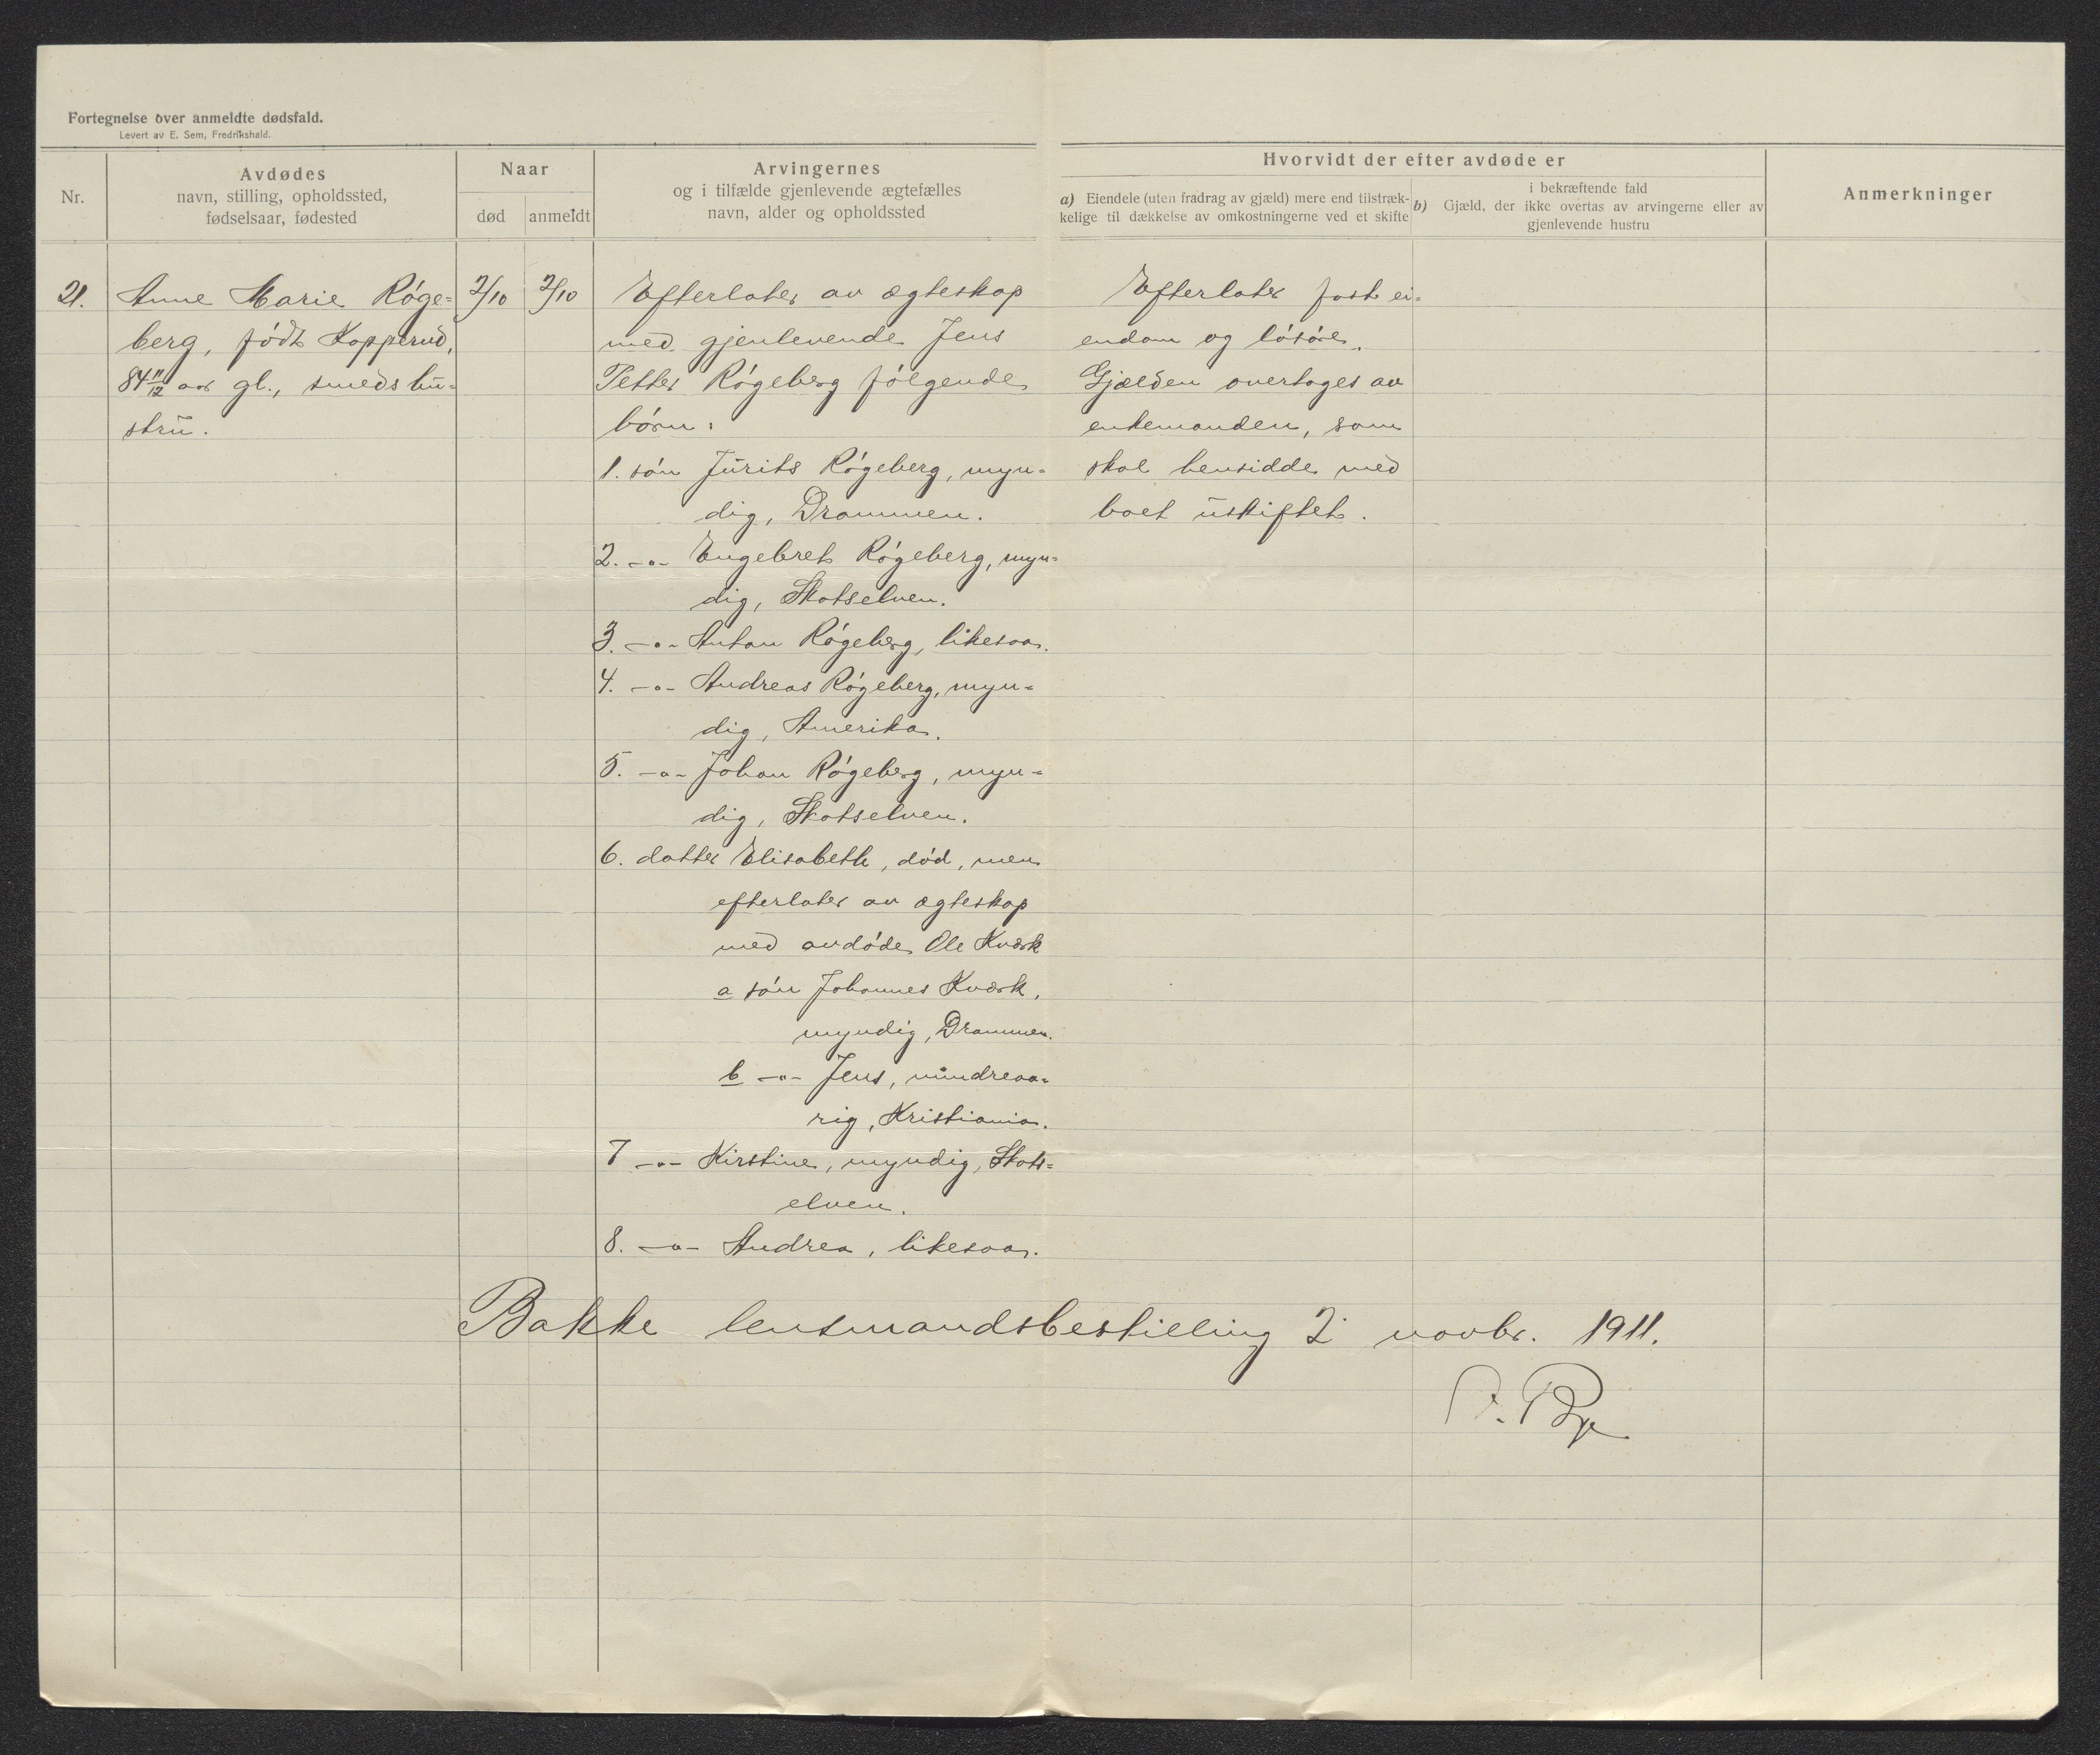 Fortegnelse over anmeldte dødsfald.
Levert av E. Sem, Fredrikshald.
Nr.
Avdødes
navn, stilling, opholdssted,
fødselsaar, fødested
Naar
død
anmeldt
Arvingernes
og i tilfælde gjenlevende ægtefælles
navn, alder og opholdssted
Hvorvidt der efter avdøde er
a) Eiendele (uten fradrag av gjæld) mere end tilstræk-
kelige til dækkelse av omkostningerne ved et skifte
i bekræftende fald
b) Gjæld, der ikke overtas av arvingerne eller av
gjenlevende hustru
Anmerkninger
21.
Anne Marie Røge=
berg, født Kopperud,
84 11/12 aar gl., smeds hu=
stru.
2/10
2/10
Efterlater av ægteskap
med gjenlevende Jens
Petter Røgeberg følgende
børn:
1. søn Jurits Røgeberg, myn=
dig, Drammen.
2. -"- Engebret Røgeberg, myn=
dig, Skotselven.
3. -"- Anton Røgeberg, likesaa.
4. -"- Andreas Røgeberg, myn=
dig, Amerika.
5. -"- Johan Røgeberg, myn=
dig, Skotselven.
6. datter Elisabeth, død, men
efterlater av ægteskap
med avdøde Ole Kværk
a søn Johannes Kværk,
myndig, Drammen.
b -"- Jens, mindreaa=
rig, Kristiania.
7 -"- Kirstine, myndig, Skots=
elven.
8. -"- Andrea, likesaa.
Efterlater fast ei=
endom og løsøre.
Gjælden overtages av
enkemanden, som
skal hensidde med
boet uskiftet.
Bakke lensmandsbestilling 2 novbr. 1911.